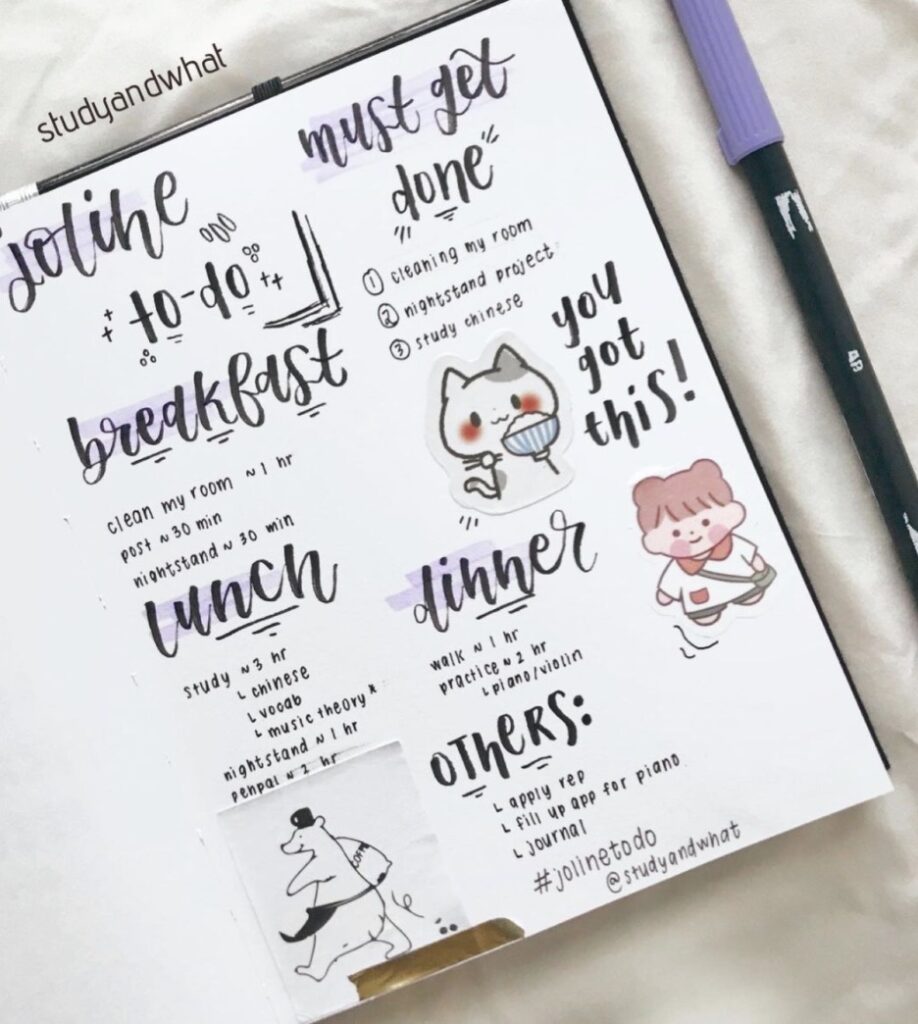 studyandwhat
joline
to-do
breakfast
clean my room ~ 1 hr
post ~ 30 min
nightstand ~ 30 min
lunch
study ~ 3 hr
↳ chinese
↳ vocab
↳ music theory*
nightstand ~ 1 hr
penpal ~ 2 hr
must get
done
① cleaning my room
② nightstand project
③ study chinese
you
got
this!
dinner
walk ~ 1 hr
practice ~ 2 hr
↳ piano/violin
OTHERS:
↳ apply rep
↳ fill up app for piano
↳ journal
#jolinetodo
@studyandwhat
corn
4B